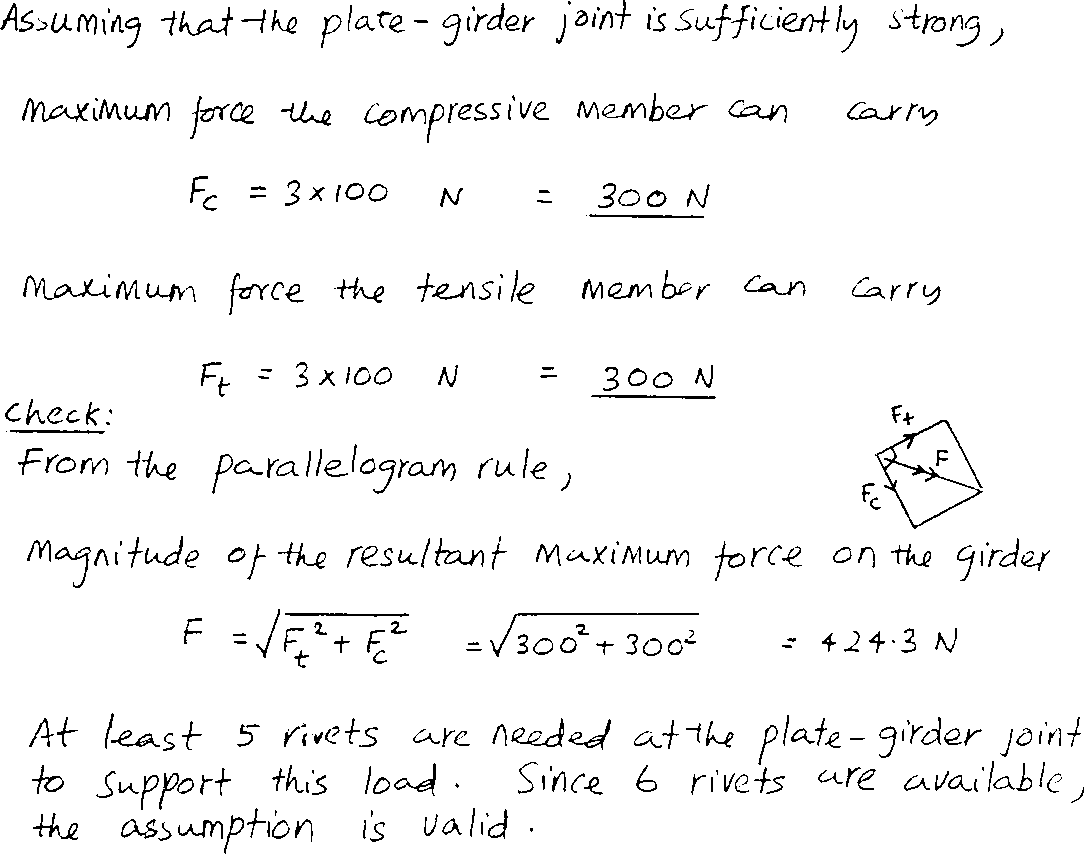 Assuming that the plate-girder joint is sufficiently strong,
Maximum force the compressive member can carry
Fc = 3 × 100 N = 300 N
Maximum force the tensile member can carry
Ft = 3 × 100 N = 300 N
Check:
From the parallelogram rule,
Ft
F
Fc
Magnitude of the resultant maximum force on the girder
F = √Ft² + Fc² = √300² + 300² = 424.3 N
At least 5 rivets are needed at the plate-girder joint
to support this load. Since 6 rivets are available,
the assumption is valid.